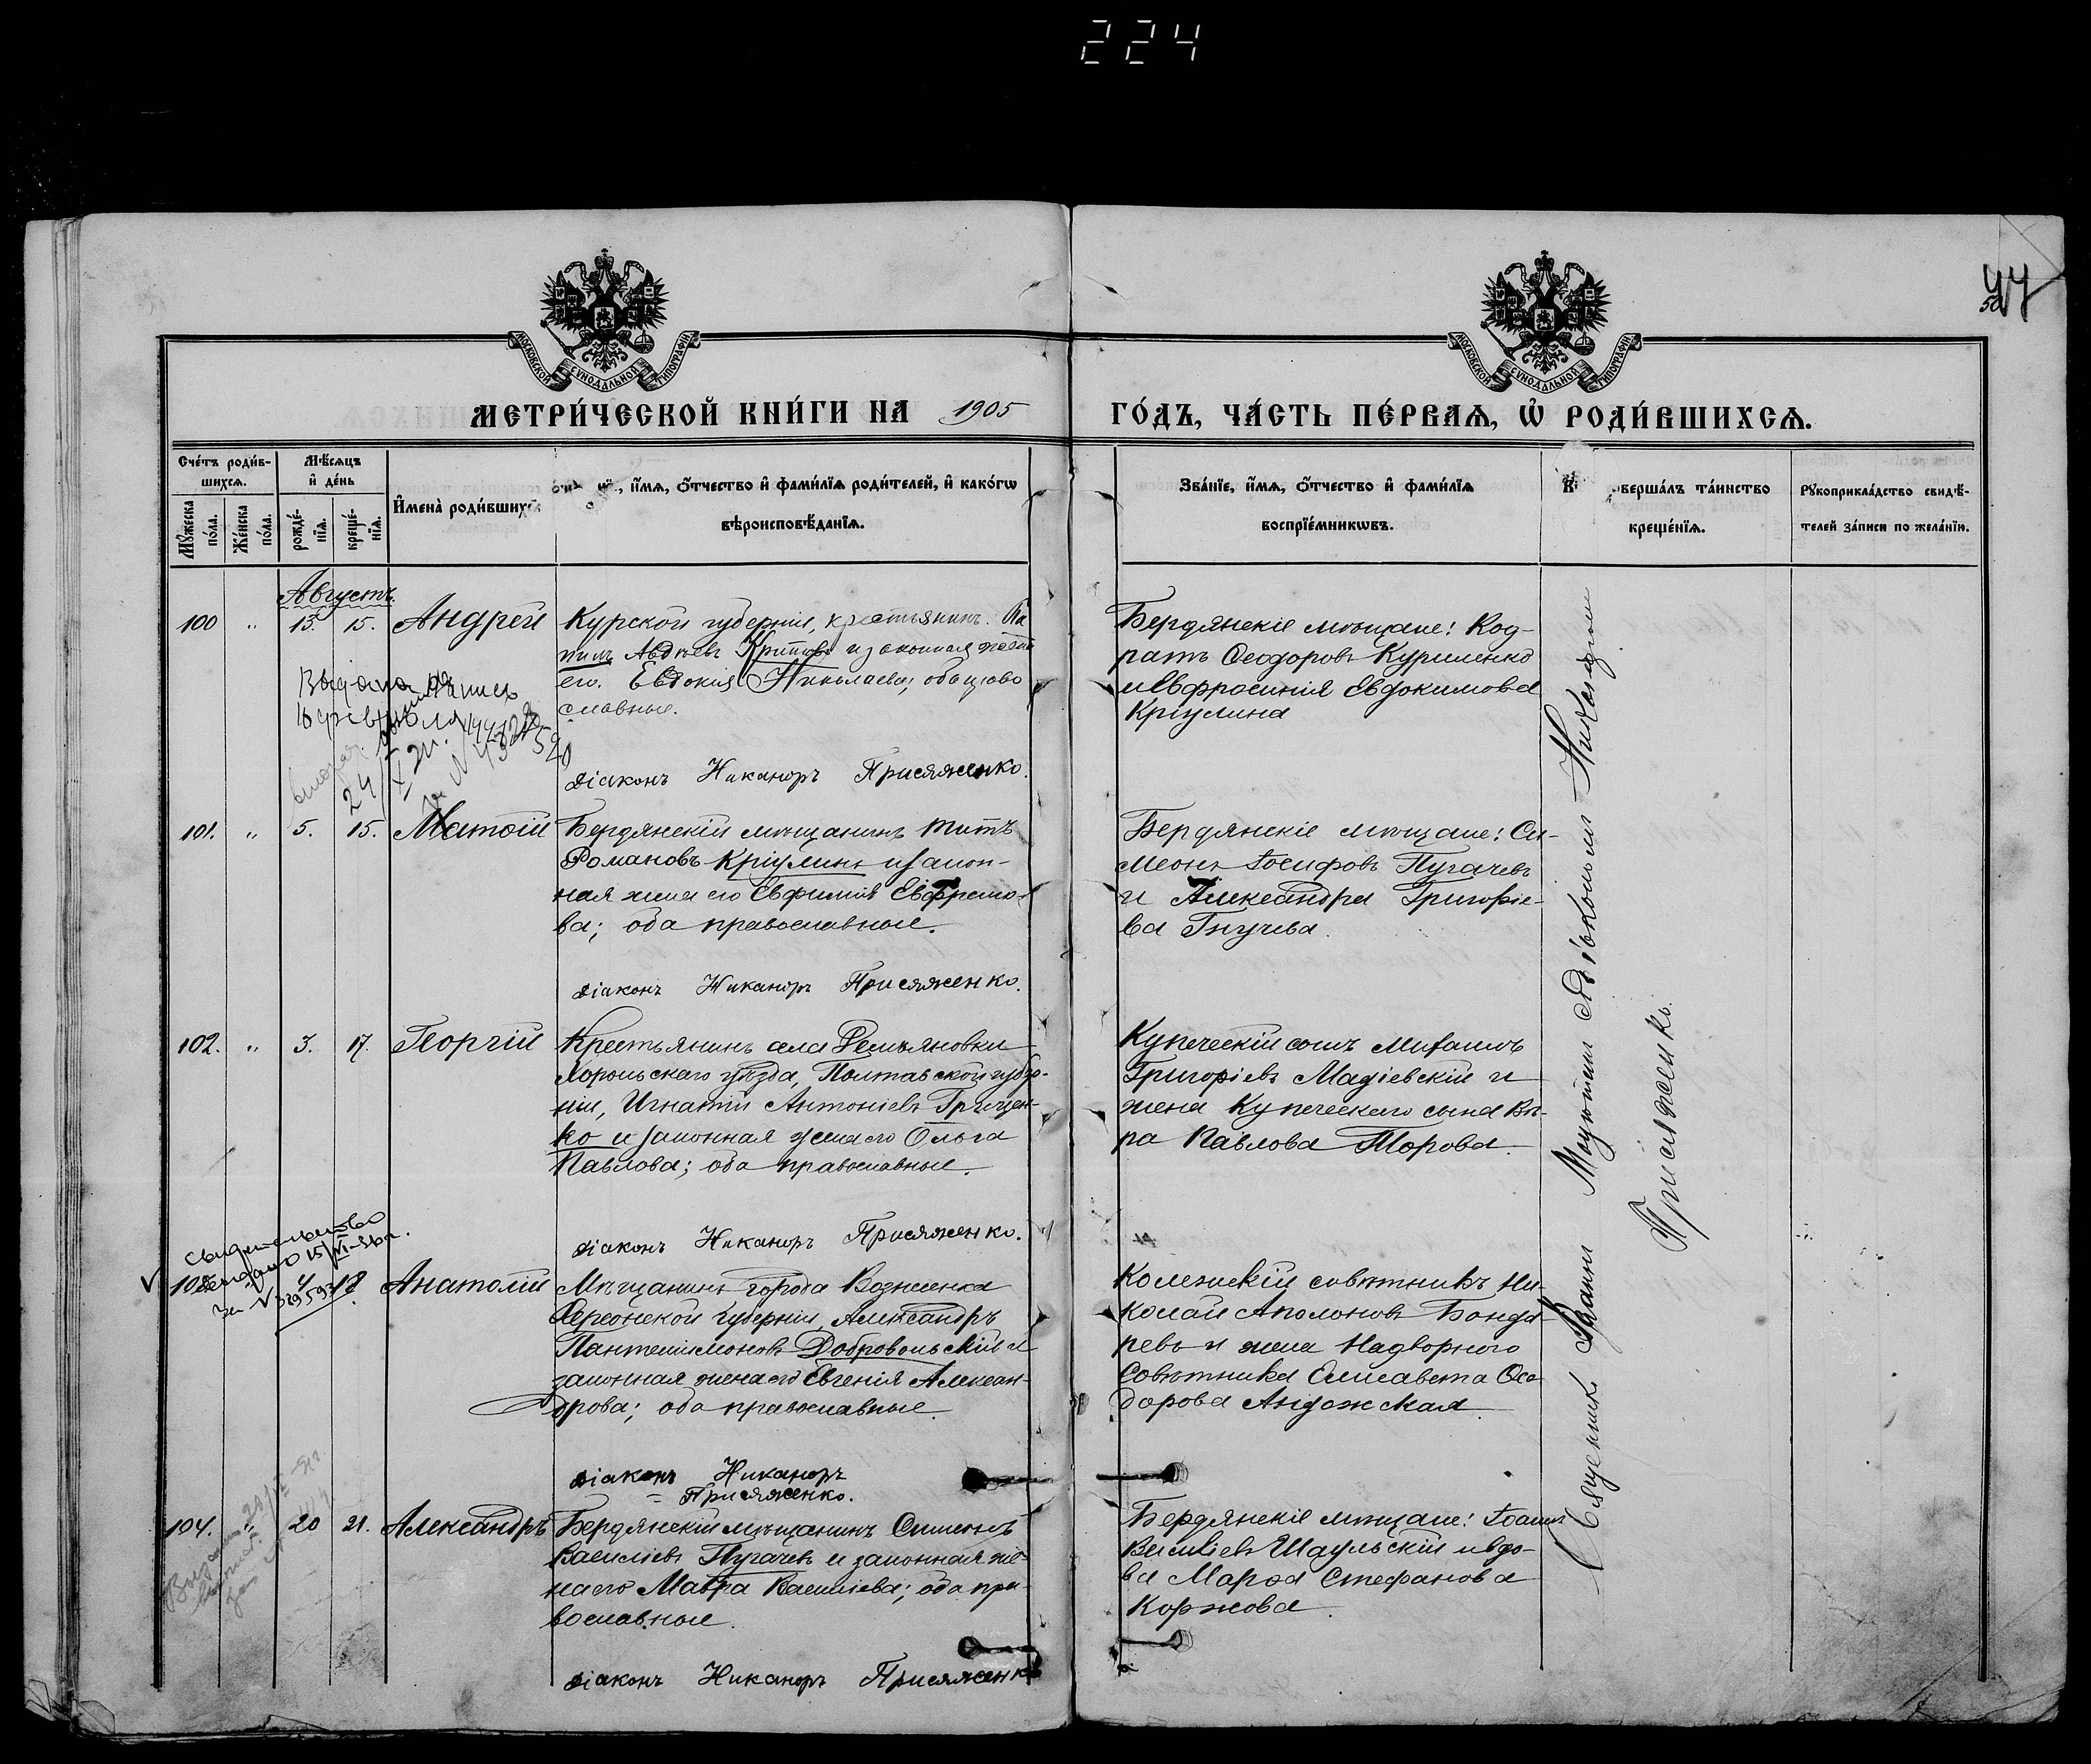 224
47
МОСКОВСКОЙ СУНОДАЛЬНОЙ ТИПОГРАФІИ
МОСКОВСКОЙ СУНОДАЛЬНОЙ ТИПОГРАФІИ
МЕТРИ́ЧЕСКОЙ КНИ́ГИ НА 1905 ГО́ДЪ, ЧА́СТЬ ПЕ́РВАѦ, Ѿ РОДИ́ВШИХСѦ.
Сче́тъ роди́в-
шихсѧ.
Мꙋ́жеска по́ла.
Же́нска по́ла.
Мѣ́сѧцъ
и҆ де́нь
рожде́-
нїѧ.
креще́-
нїѧ.
И҆мена̀ роди́вшихсѧ
и҆́мѧ, ѻ҆́тчество и҆ фами́лїѧ роди́телей, и҆ како́гѡ
вѣроисповѣ́данїѧ.
Зва́нїе, и҆́мѧ, ѻ҆́тчество и҆ фами́лїѧ
воспрїе́мникѡвъ.
вершалъ та́инство
креще́нїѧ.
Рꙋкоприкла́дство свидѣ́-
телей за́писи по жела́нїю.
Августъ
100 " 13. 15. Андрей
Курской губерніи, крестьянинъ
Авдѣевъ и законная жена
его Евдокія Николаева; оба право
славные.
Діаконъ Никаноръ Присяженко.
Бердянскіе мѣщане: Код-
ратъ Ѳеодоровъ Куриленко
и Евфросинія Евдокимова
Кріулина
101. " 5. 15. Матѳій
Бердянскій мѣщанинъ Титъ
Романовъ Кріулинъ и закон-
ная жена его Евфимія Евфремо-
ва; оба православные.
Діаконъ Никаноръ Присяженко.
Бердянскіе мѣщане: Си-
меонъ Іосифовъ Пугачевъ
и Александра Григоріе-
ва
102. " 3. 17. Георгій
Крестьянинъ села
Хорольскаго уѣзда, Полтавской губер-
ніи, Игнатій Антоніевъ Грицен-
ко и законная жена его Ольга
Павлова; оба православные.
Діаконъ Никаноръ Присяженко.
Купеческій сынъ Михаилъ
Григоріевъ Магіевскій и
жена купеческаго сына Вѣ-
ра Павлова
свидетельство
выдано 15/VI-36г.
за №
Анатолій
Мѣщанинъ города Вознесенска
Херсонской губерніи, Александръ
Пантелеимоновъ Добровольскій и
законная жена его Евгенія Алексан-
дрова; оба православные.
Діаконъ Никаноръ
Присяженко.
Колежскій совѣтникъ Ни-
колай Аполоновъ Бонда-
ревъ и жена Надворного
Совѣтника Елисавета Ѳео-
дорова
104. " 20 21. Александръ
Бердянскій мѣщанинъ Симеонъ
Василіевъ Пугачевъ и законная же-
на его Мавра Василіева; оба пра-
вославные.
Діаконъ Никаноръ Присяженко
Бердянскіе мѣщане: Іоаннъ
Василіевъ Шаульскій и вдо-
ва Марѳа Стефанова
Коржова
Священникъ Іоаннъ съ діакономъ Никаноромъ
Присяженко.